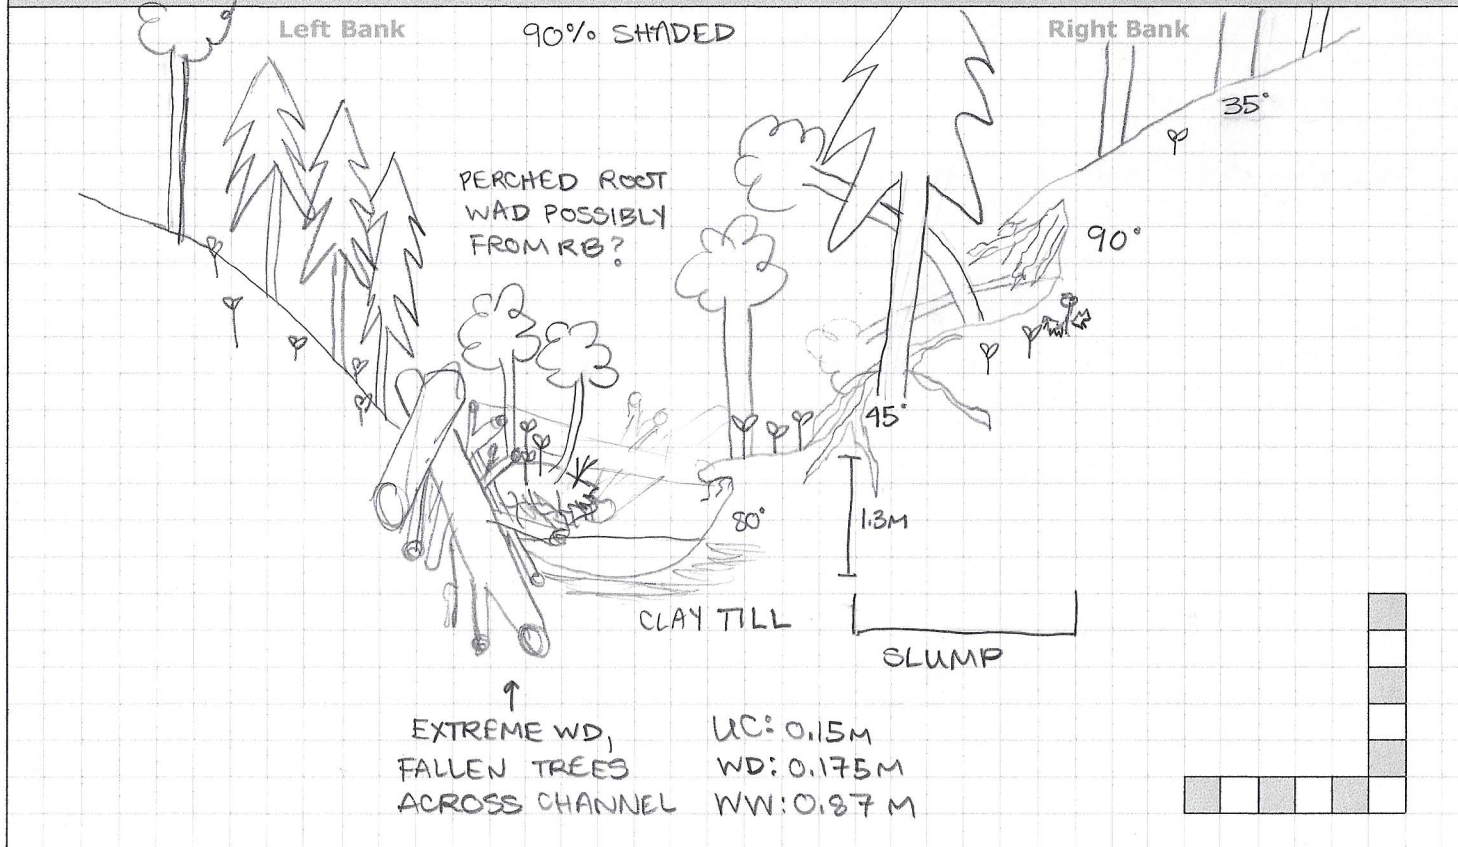 Left Bank
90% SHADED
Right Bank
35°
PERCHED ROOT
WAD POSSIBLY
FROM RB?
90°
45°
80°
1.3M
CLAY TILL
SLUMP
EXTREME WD,
FALLEN TREES
ACROSS CHANNEL
UC: 0.15M
WD: 0.175M
WW: 0.87 M